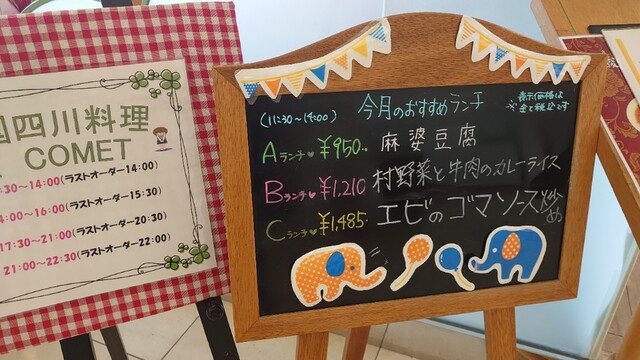 国四川料理
COMET
:30～14:00(ラストオーダー14:00)
4:00～16:00(ラストオーダー15:30)
17:30～21:00(ラストオーダー20:30)
21:00～22:30(ラストオーダー22:00)
(11:30～14:00) 今月のおすすめランチ
※表示価格は
全て税込です
Aランチ♥ ¥950.- 麻婆豆腐
Bランチ♥ ¥1,210 村野菜と牛肉のカレーライス
Cランチ♥ ¥1,485. エビのゴマソース炒め